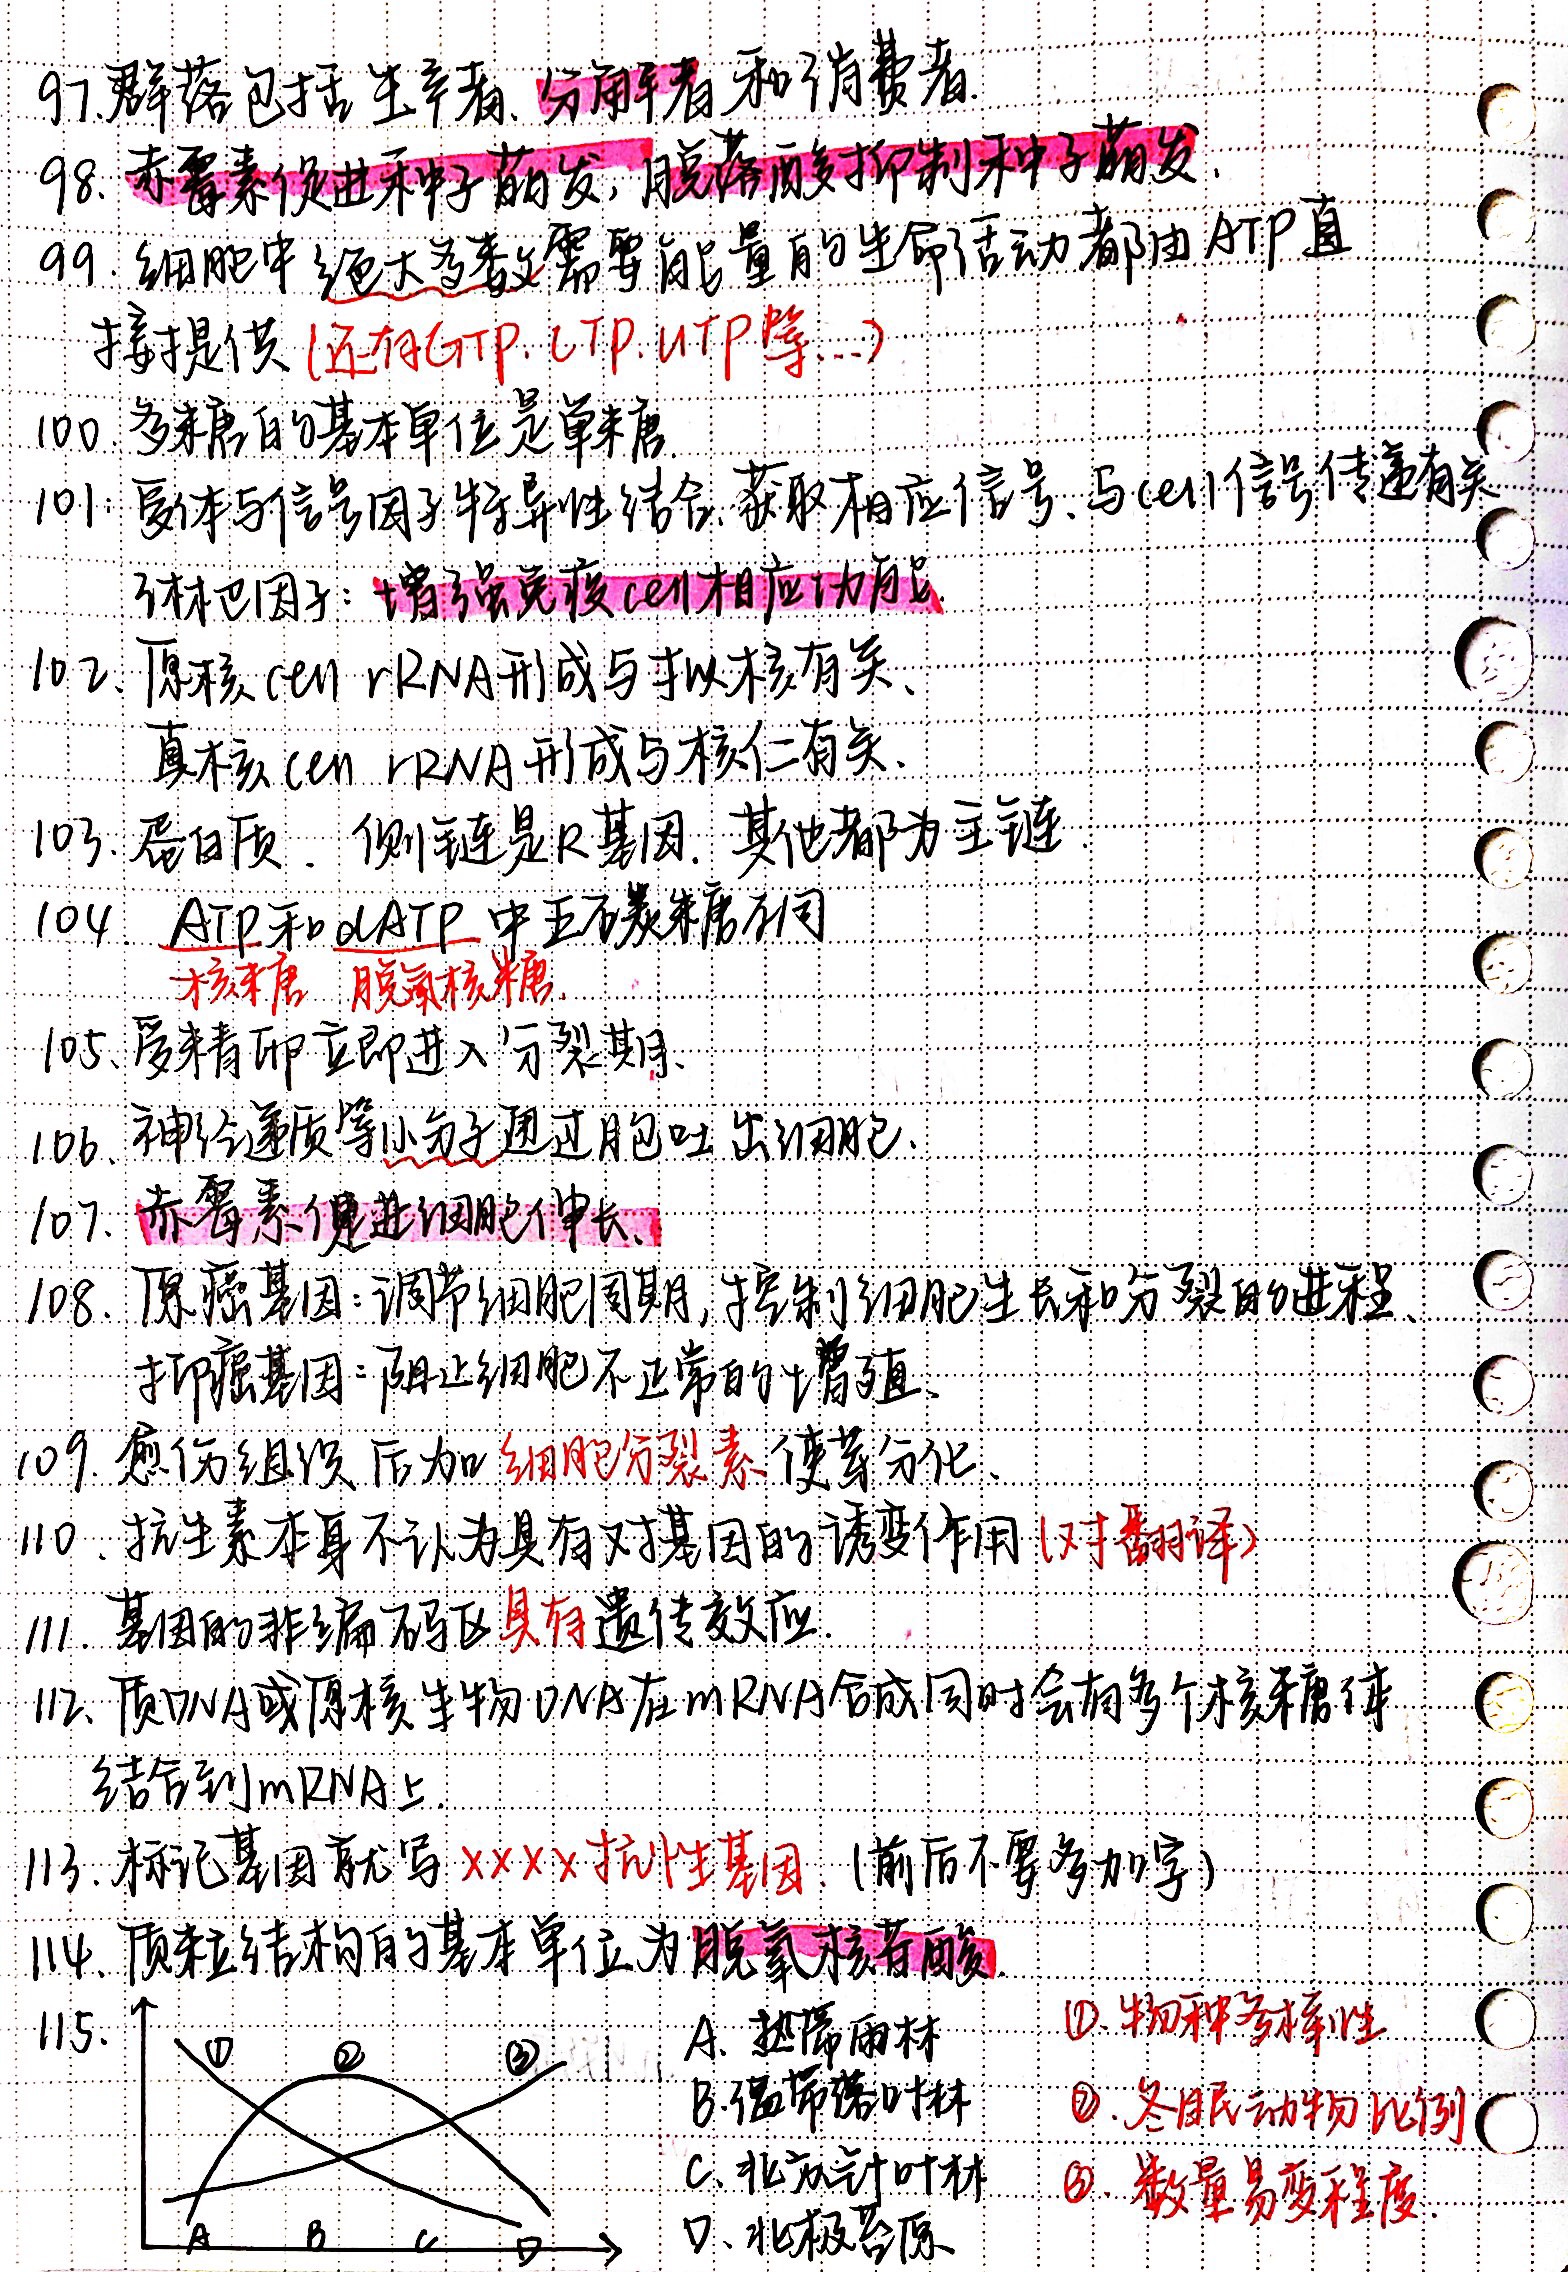 97.群落包括生产者、分解者和消费者.
98.赤霉素促进种子萌发,脱落酸抑制种子萌发.
99.细胞中绝大多数需要能量的生命活动都由ATP直
接提供(还有GTP.CTP.UTP等...)
100.多糖的基本单位是单糖.
101.受体与信号因子特异性结合、获取相应信号、与cell信号传递有关
淋巴因子:增强免疫cell相应功能.
102、原核cell rRNA形成与拟核有关、
真核cell rRNA形成与核仁有关、
103.蛋白质.侧链是R基因.其他都为主链.
104 ATP和dATP中五碳糖不同
核糖 脱氧核糖.
105、受精卵立即进入分裂期、
106、神经递质等小分子通过胞吐出细胞.
107.赤霉素促进细胞伸长、
108.原癌基因:调节细胞周期,控制细胞生长和分裂的进程、
抑癌基因:阻止细胞不正常的增殖、
109.愈伤组织后加细胞分裂素使芽分化、
110.抗生素本身不认为具有对基因的诱变作用(对翻译)
111.基因的非编码区具有遗传效应.
112、质DNA或原核生物DNA在mRNA合成同时会有多个核糖体
结合到mRNA上.
113.标记基因就写××××抗性基因.(前后不要多加字)
114、质粒结构的基本单位为脱氧核苷酸.
115.
① ② ③
A B C D
A.热带雨林
B.温带落叶林
C.北方针叶林
D、北极苔原
①.物种多样性
②.冬眠动物比例
③.数量易变程度.